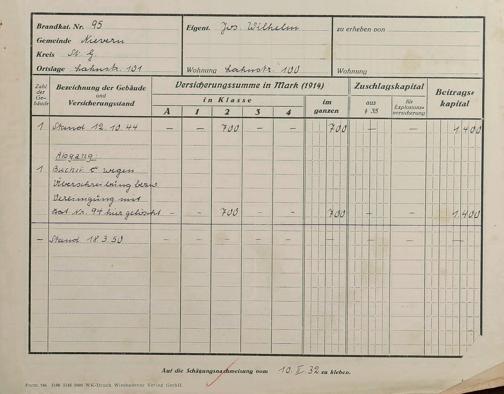 Brandkat. Nr. 95
Gemeinde Nievern
Kreis St. G.
Ortslage Lahnstr. 101
Eigent. Jos. Wilhelm
Wohnung Lahnstr. 100
zu erheben von
Wohnung
Zahl der Gebäude
Bezeichnung der Gebäude und Versicherungsstand
Versicherungssumme in Mark (1914)
in Klasse
A 1 2 3 4
im ganzen
Zuschlagskapital
aus § 35
für Explosionsversicherung
Beitragskapital
1 Stand 12.10.44 — — 700 — — 700 — — 1400
Abgang:
1 Buchst. c wegen
Überschreibung bezw.
Vereinigung mit
Kat. Nr. 94 hier gelöscht — — 700 — — 700 — — 1.400
— Stand 18.3.50 — — — — — — — — —
Auf die Schätzungsnachweisung vom 10. 32 zu kleben.
WK-Druck Wiesbadener Verlag GmbH.